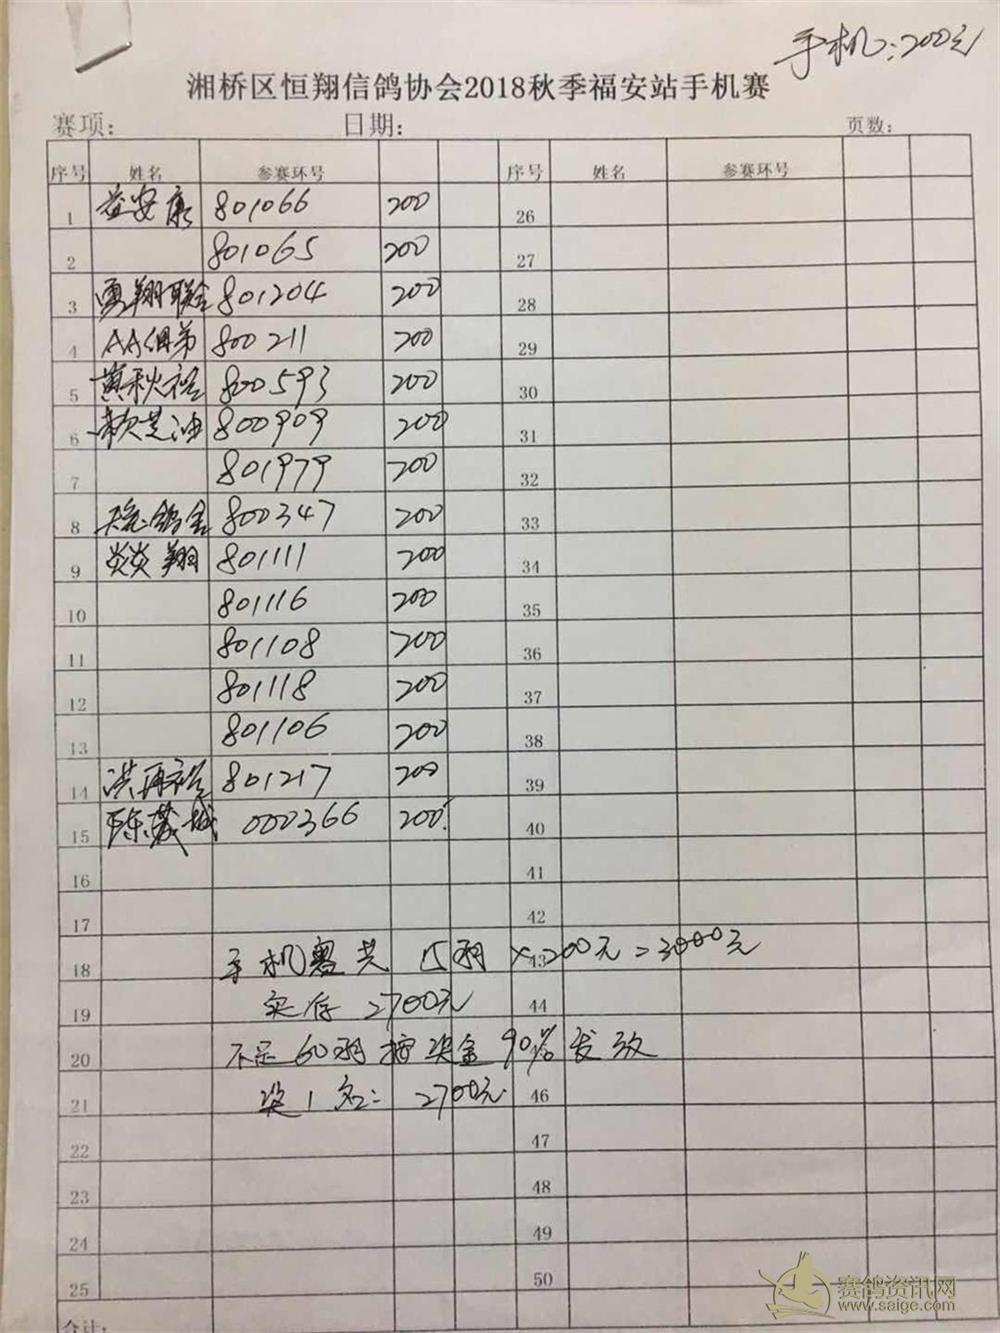 手机:200元
湘桥区恒翔信鸽协会2018秋季福安站手机赛
赛项: 日期: 页数:
序号 姓名 参赛环号 序号 姓名 参赛环号
1 益安康 801066 200 26
2 801065 200 27
3 勇翔联合 801204 200 28
4 AA俱弟 800211 200 29
5 黄秋裕 800593 200 30
6 赖芝油 800909 200 31
7 801979 200 32
8 鸽舍 800347 200 33
9 炎炎翔 801111 200 34
10 801116 200 35
11 801108 200 36
12 801118 200 37
13 801106 200 38
14 洪再裕 801217 200 39
15 陈茂城 000366 200 40
16 41
17 42
18 手机赛共 15羽 ×200元=3000元 43
19 实存 2700元 44
20 不足60羽按奖金90%发放
21 奖1名: 2700元 46
22 47
23 48
24 49
25 50
合计:
赛鸽资讯网
www.saige.com